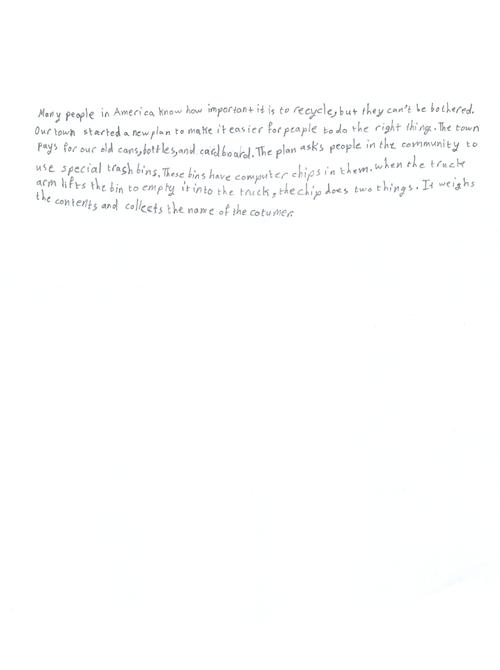 Many people in America know how important it is to recycle, but they can't be bothered.
Our town started a new plan to make it easier for people to do the right thing. The town
pays for our old cans, bottles, and cardboard. The plan asks people in the community to
use special trash bins. These bins have computer chips in them. When the truck
arm lifts the bin to empty it into the truck, the chip does two things. It weighs
the contents and collects the name of the cotumer.